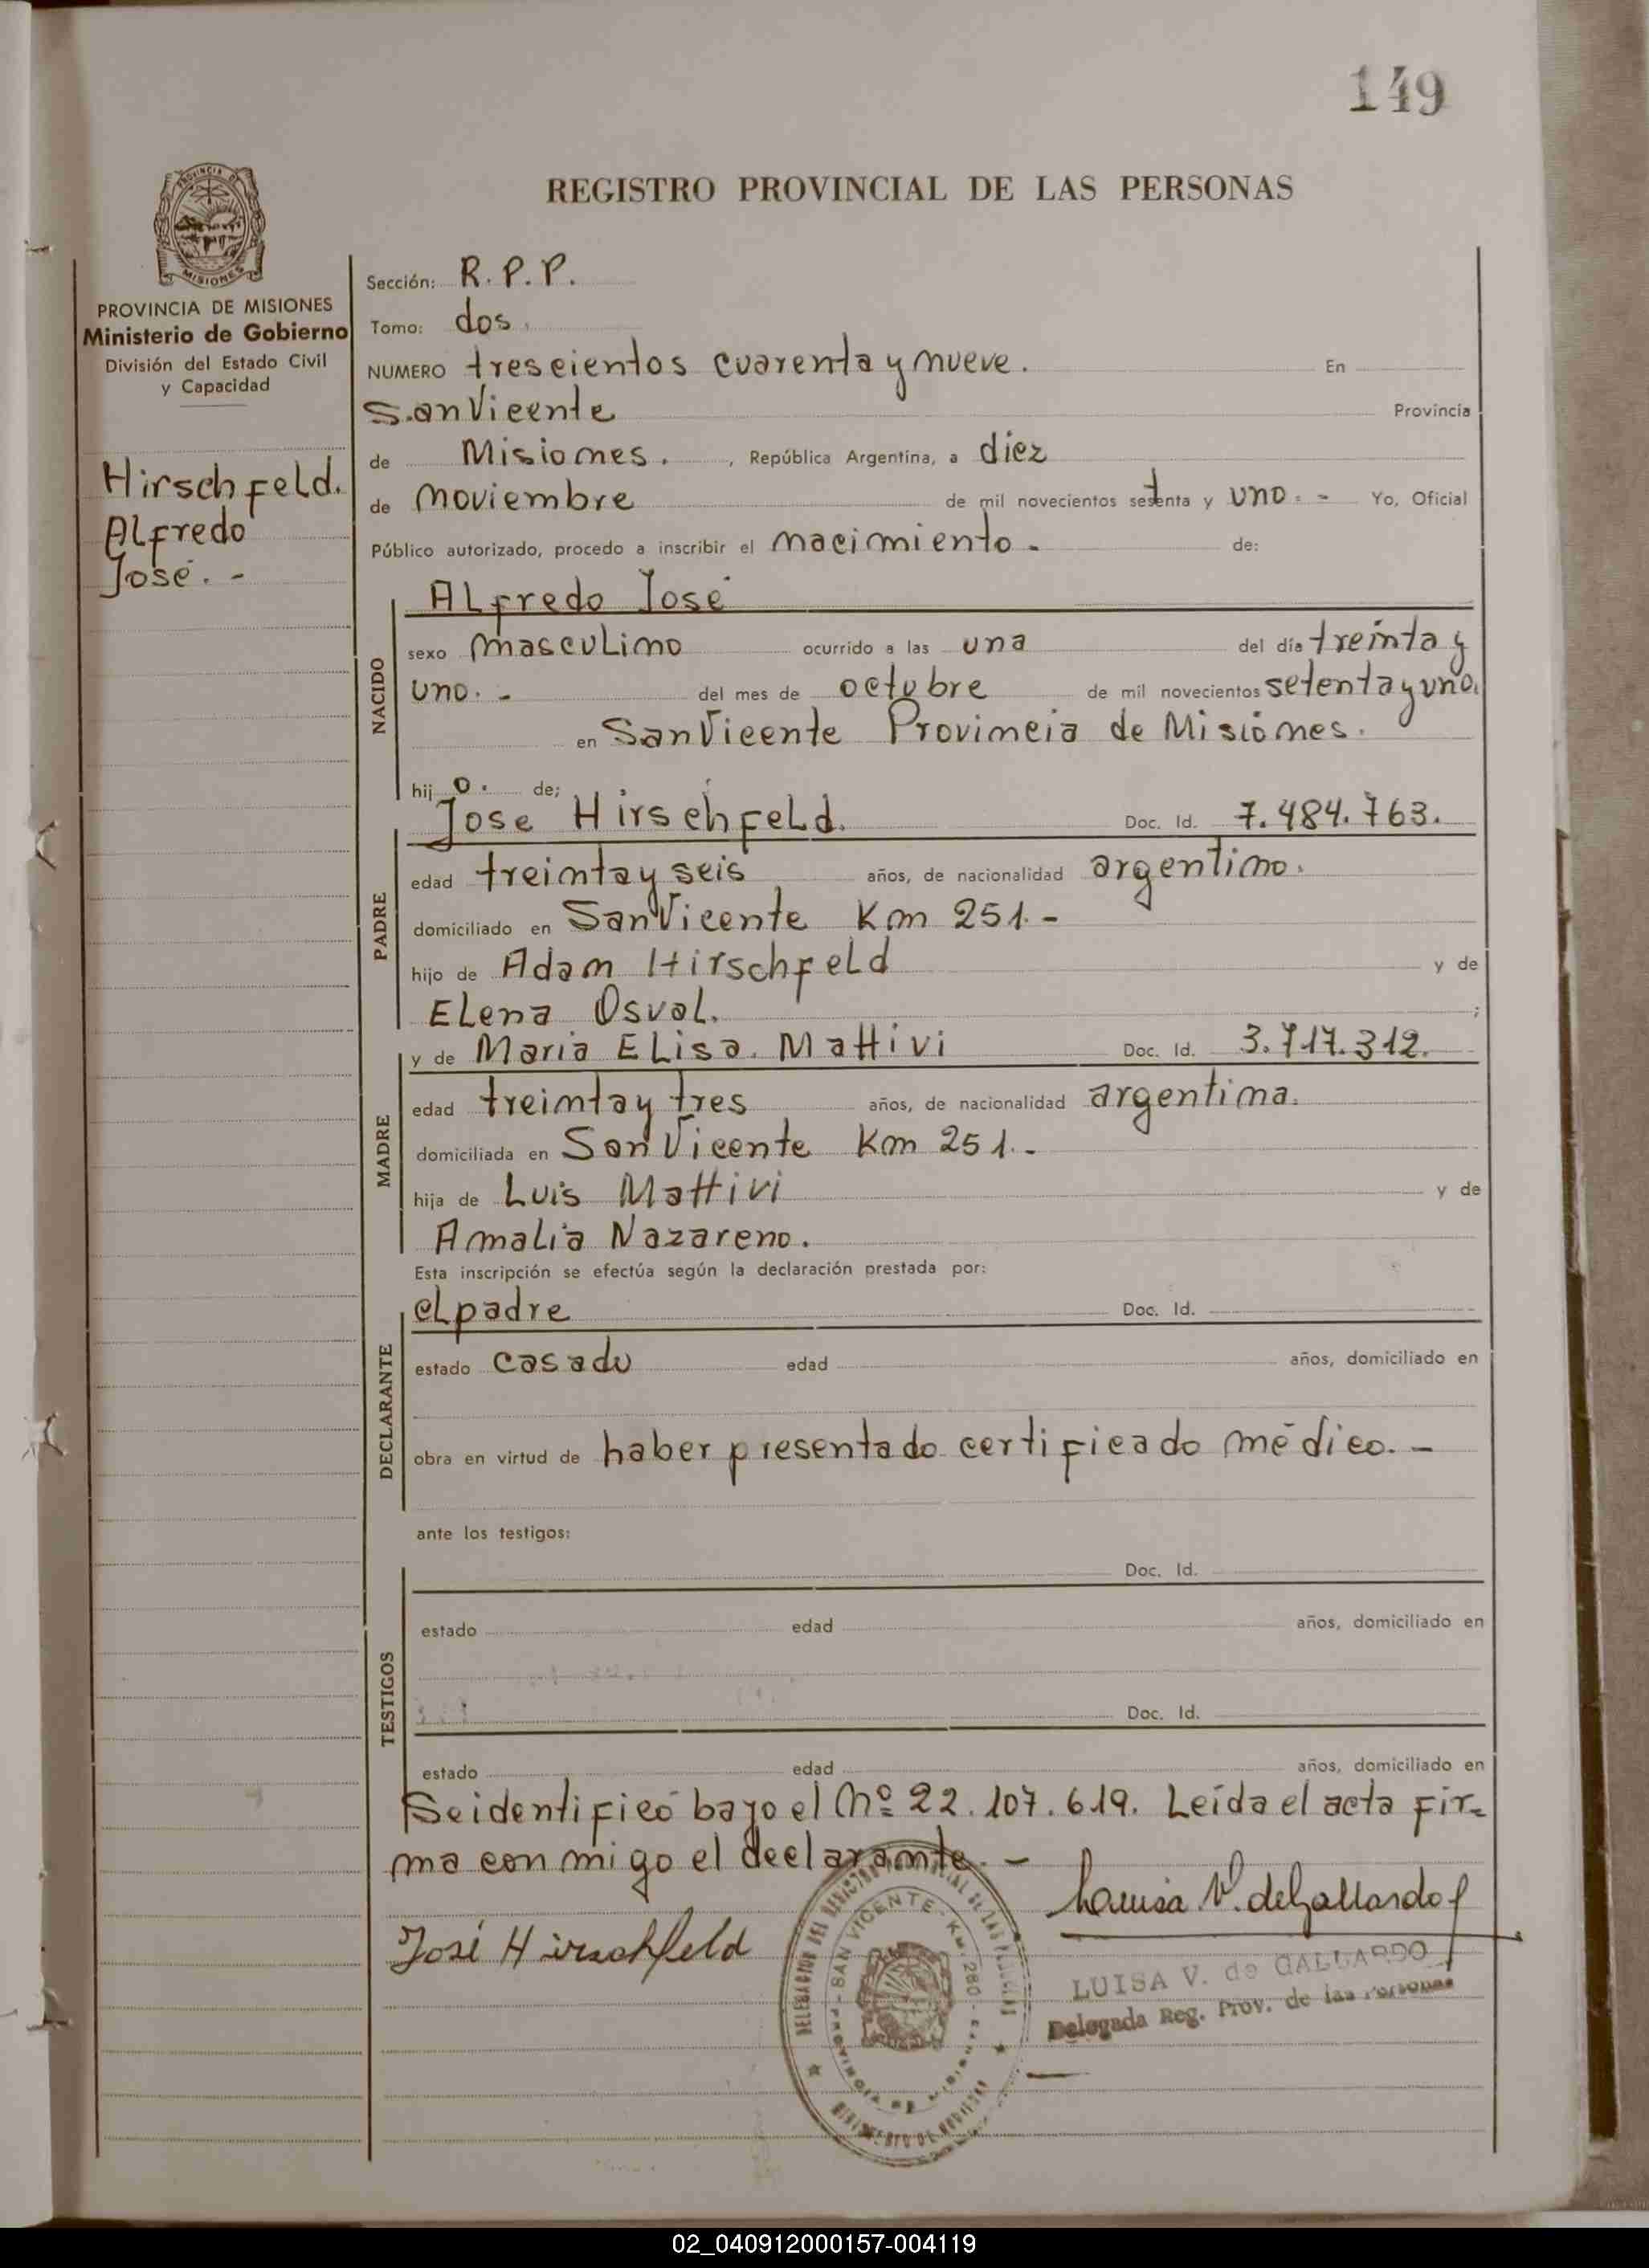 149
REGISTRO PROVINCIAL DE LAS PERSONAS
PROVINCIA DE
MISIONES
PROVINCIA DE MISIONES
Ministerio de Gobierno
División del Estado Civil
y Capacidad
Hirschfeld.
Alfredo
José. -
Sección: R.P.P.
Tomo: dos.
NUMERO trescientos cuarenta y nueve. En
San Vicente Provincia
de Misiones. , República Argentina, a diez
de noviembre de mil novecientos setenta y uno. - Yo, Oficial
Público autorizado, procedo a inscribir el nacimiento. de:
NACIDO
Alfredo José
sexo masculino ocurrido a las una del día treinta y
uno. - del mes de octubre de mil novecientos setenta y uno.
en San Vicente Provincia de Misiones.
hij o. de;
PADRE
Jose Hirschfeld. Doc. Id. 7.484.763.
edad treinta y seis años, de nacionalidad argentino.
domiciliado en San Vicente Km 251. -
hijo de Adam Hirschfeld y de
Elena Osval. ;
MADRE
y de Maria Elisa. Mattivi Doc. Id. 3.717.312.
edad treinta y tres años, de nacionalidad argentina.
domiciliada en San Vicente Km 251. -
hija de Luis Mattivi y de
Amalia Nazareno.
Esta inscripción se efectúa según la declaración prestada por:
DECLARANTE
el padre Doc. Id.
estado casado edad años, domiciliado en
obra en virtud de haber presentado certificado médico. -
ante los testigos:
TESTIGOS
Doc. Id.
estado edad años, domiciliado en
Doc. Id.
estado edad años, domiciliado en
Se identificó bajo el Nº 22.107.619. Leída el acta fir=
ma conmigo el declarante. -
José Hirschfeld
Luisa V. de Gallardo
LUISA V. de GALLARDO
Delegada Reg. Prov. de las Personas
SAN VICENTE - Km. 280
02_040912000157-004119